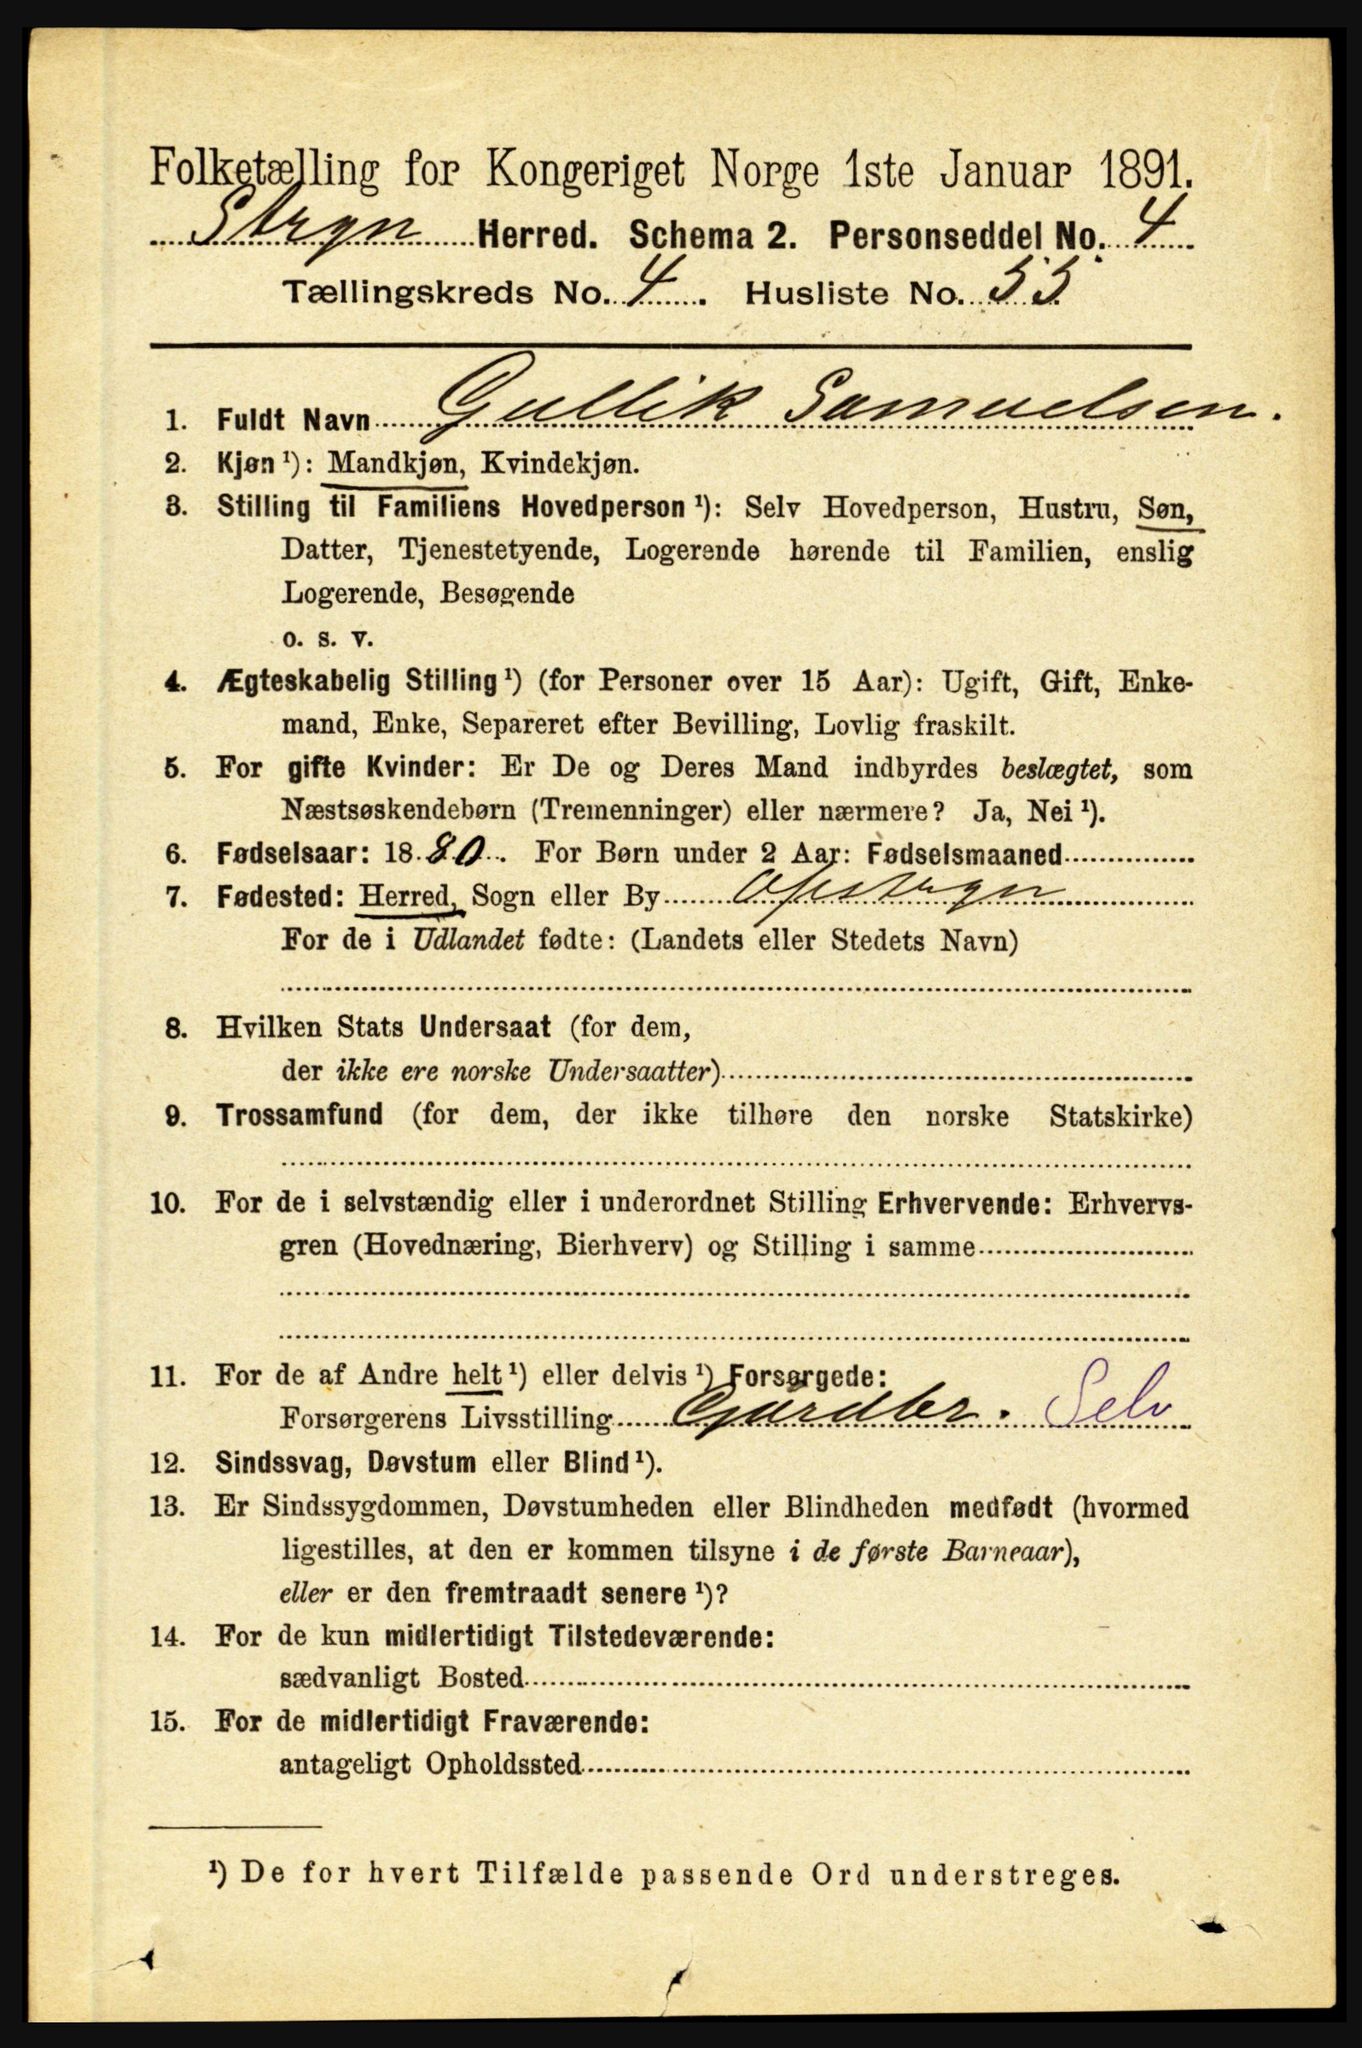 Folketælling for Kongeriget Norge 1ste Januar 1891.
Stryn Herred. Schema 2. Personseddel No. 4
Tællingskreds No. 4. Husliste No. 55
1. Fuldt Navn Gullik Samuelsen.
2. Kjøn ¹): Mandkjøn, Kvindekjøn.
3. Stilling til Familiens Hovedperson ¹): Selv Hovedperson, Hustru, Søn,
Datter, Tjenestetyende, Logerende hørende til Familien, enslig
Logerende, Besøgende
o. s. v.
4. Ægteskabelig Stilling ¹) (for Personer over 15 Aar): Ugift, Gift, Enke-
mand, Enke, Separeret efter Bevilling, Lovlig fraskilt.
5. For gifte Kvinder: Er De og Deres Mand indbyrdes beslægtet, som
Næstsøskendebørn (Tremenninger) eller nærmere? Ja, Nei ¹).
6. Fødselsaar: 1880. For Børn under 2 Aar: Fødselsmaaned
7. Fødested: Herred, Sogn eller By Opstryn
For de i Udlandet fødte: (Landets eller Stedets Navn)
8. Hvilken Stats Undersaat (for dem,
der ikke ere norske Undersaatter)
9. Trossamfund (for dem, der ikke tilhøre den norske Statskirke)
10. For de i selvstændig eller i underordnet Stilling Erhvervende: Erhvervs-
gren (Hovednæring, Bierhverv) og Stilling i samme
11. For de af Andre helt ¹) eller delvis ¹) Forsørgede:
Forsørgerens Livsstilling Gardbr. Selv
12. Sindssvag, Døvstum eller Blind ¹).
13. Er Sindssygdommen, Døvstumheden eller Blindheden medfødt (hvormed
ligestilles, at den er kommen tilsyne i de første Barneaar),
eller er den fremtraadt senere ¹)?
14. For de kun midlertidigt Tilstedeværende:
sædvanligt Bosted
15. For de midlertidigt Fraværende:
antageligt Opholdssted
¹) De for hvert Tilfælde passende Ord understreges.